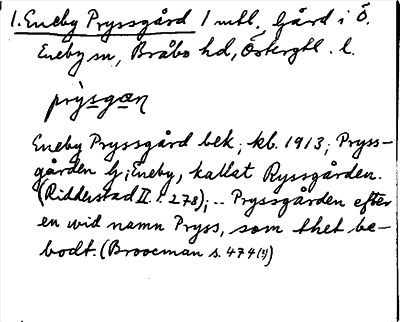 1. Eneby Pryssgård 1 mtl. Gård i Ö.
Eneby sn, Bråbo hd, Östergtl. l.
prysgæn
Eneby Pryssgård bek; kb. 1913; Pryss-
gården G; Eneby, kallat Ryssgården.
(Ridderstad II s. 278); .. Pryssgården efter
en wid namn Pryss, som thet be-
bodt. (Broocman s. 474(?))